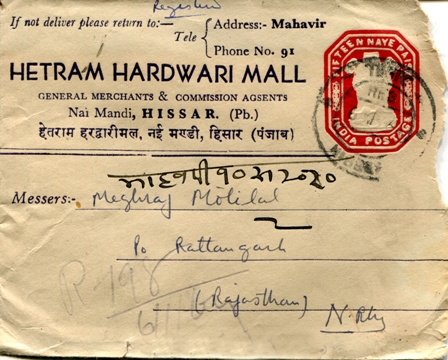 Registered
If not deliver please return to:-
Tele { Address:- Mahavir
Phone No. 91
HETRAM HARDWARI MALL
GENERAL MERCHANTS & COMMISSION AGSENTS
Nai Mandi, HISSAR. (Pb.)
हेतराम हरद्वारीमल, नई मण्डी, हिसार (पंजाब)
FIFTEEN NAYE PAISE
INDIA POSTAGE
Messers:- Meghraj Motilal
Po Rattangarh
(Rajasthan)
N. Rly
R-198